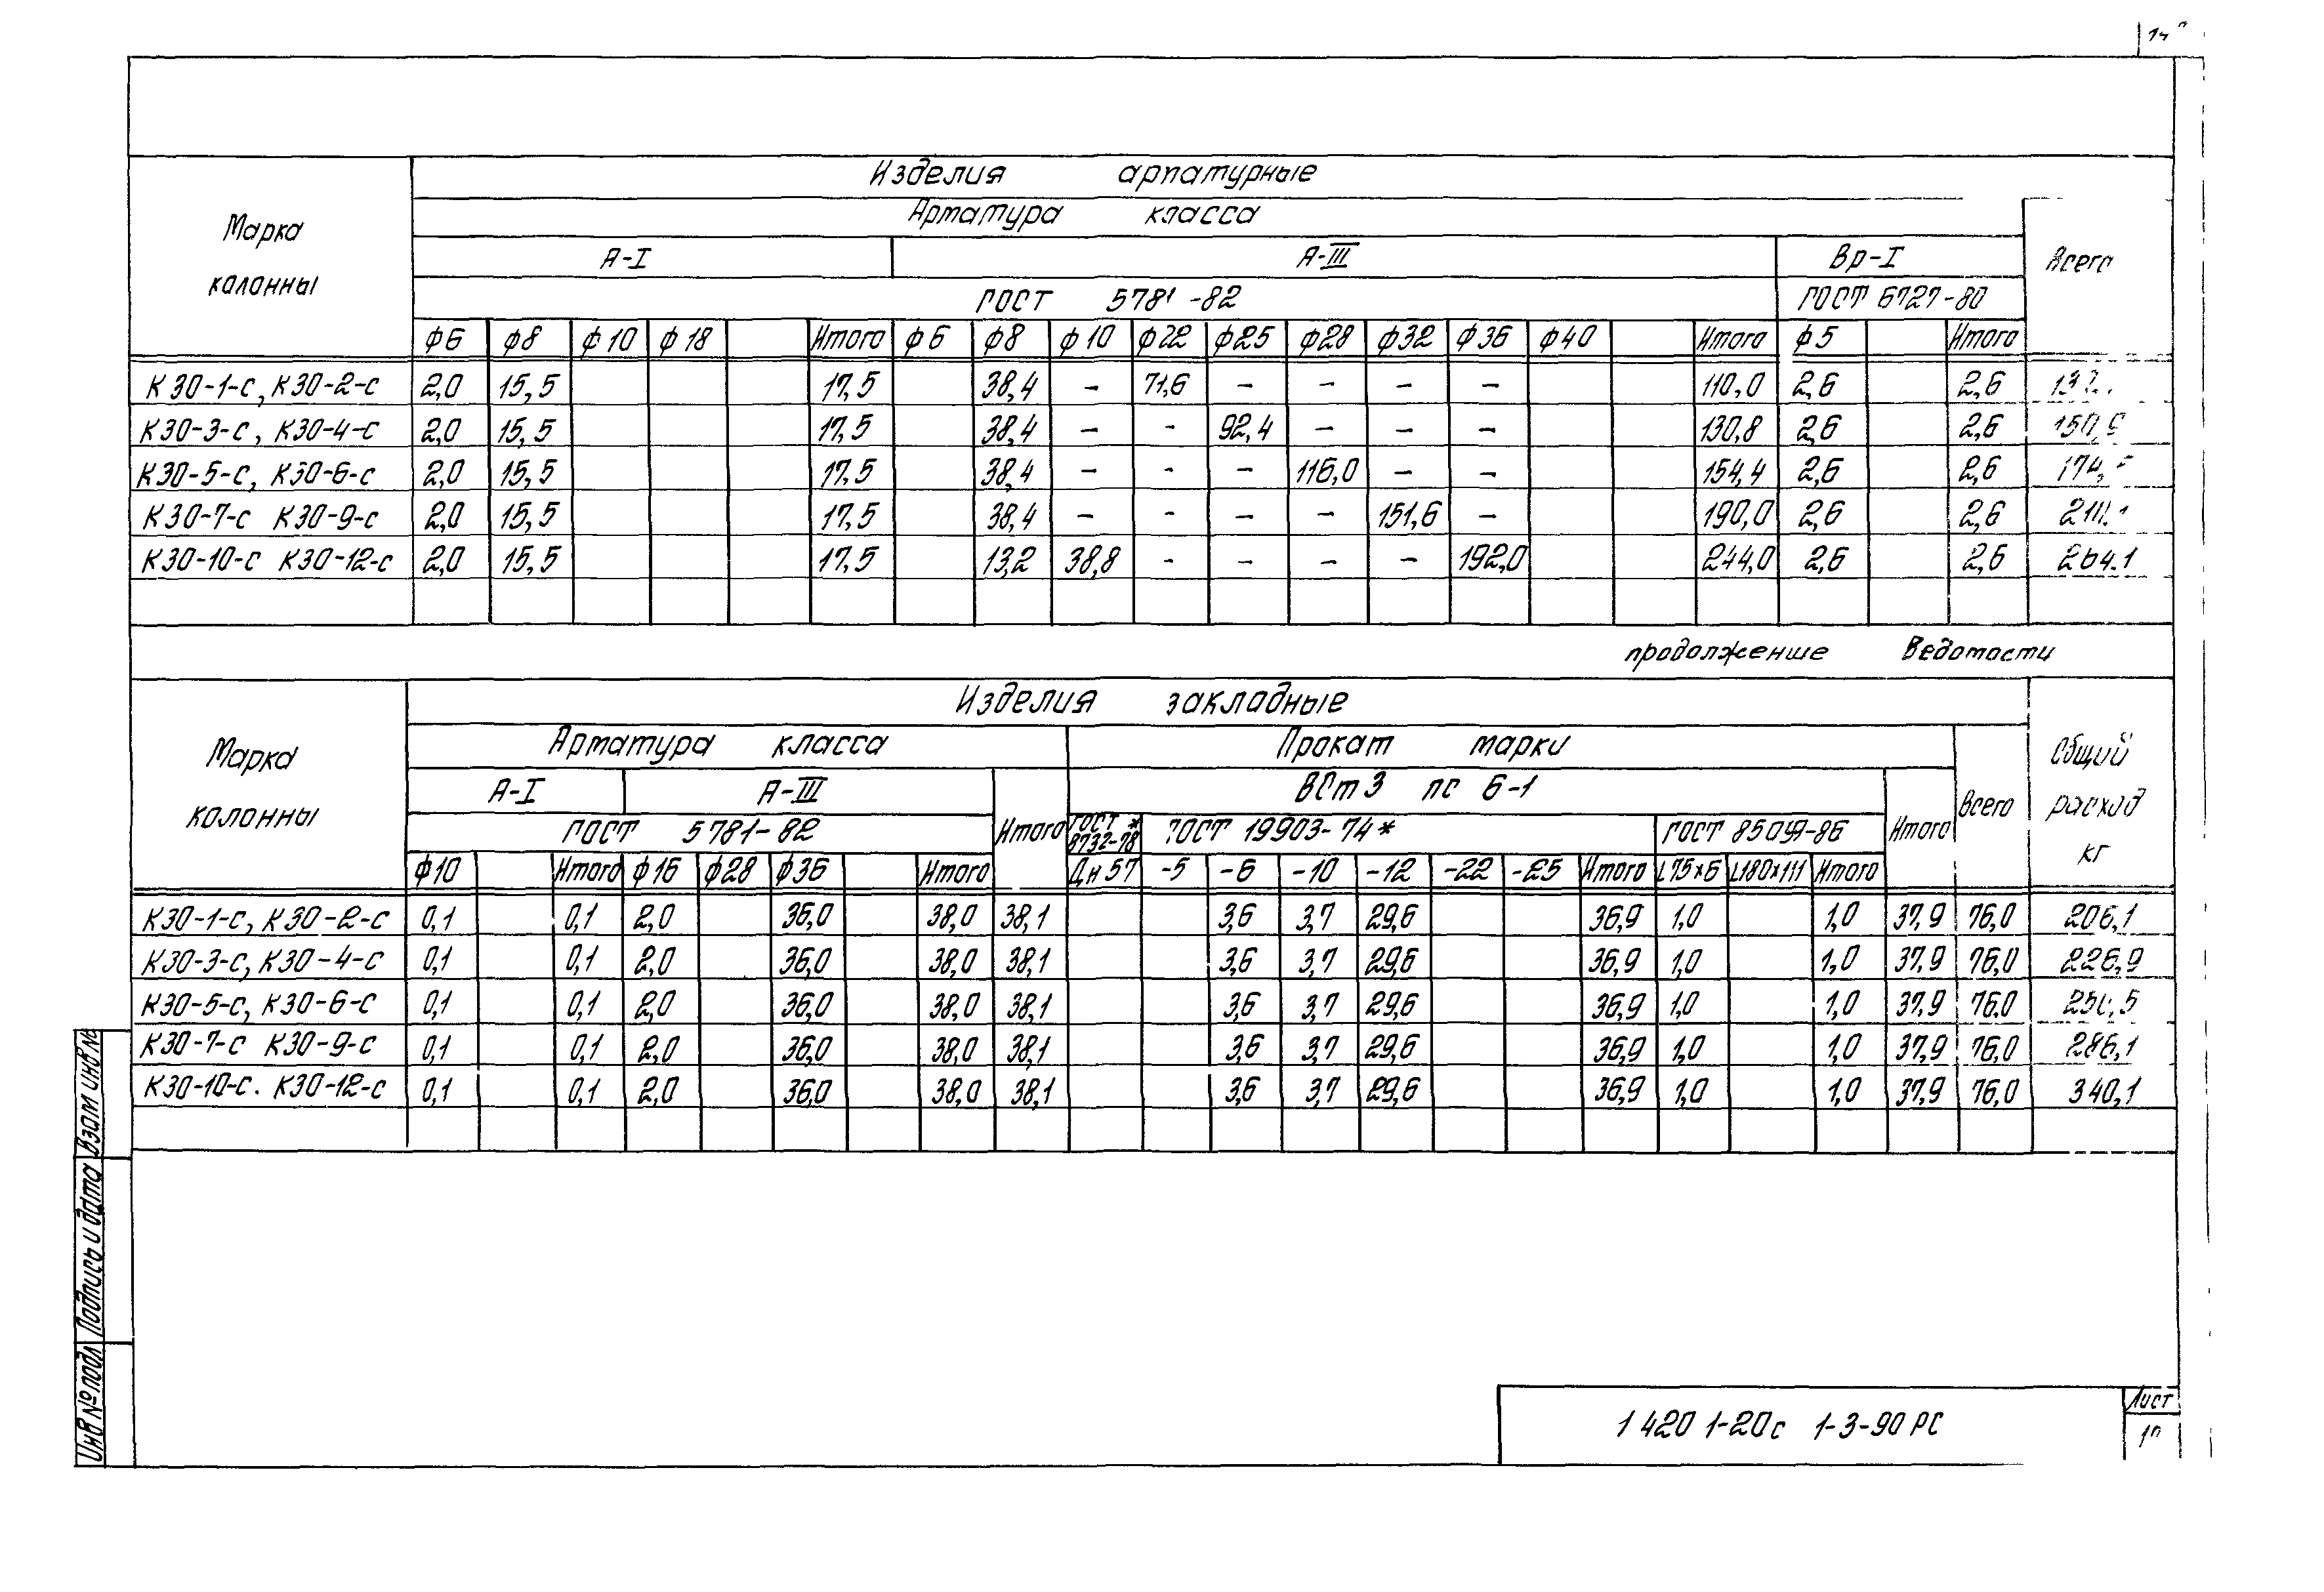 Марка колонны
Изделия арматурные
Арматура класса
А-I А-III Вр-I Всего
ГОСТ 5781-82 ГОСТ 6727-80
ф6 ф8 ф10 ф18 Итого ф6 ф8 ф10 ф22 ф25 ф28 ф32 ф36 ф40 Итого ф5 Итого
К30-1-с, К30-2-с 2,0 15,5 17,5 38,4 – 71,6 – – – – 110,0 2,6 2,6
К30-3-с, К30-4-с 2,0 15,5 17,5 38,4 – - 92,4 – – – 130,8 2,6 2,6 150,9
К30-5-с, К30-6-с 2,0 15,5 17,5 38,4 – - – 116,0 – – 154,4 2,6 2,6
К30-7-с К30-9-с 2,0 15,5 17,5 38,4 – - – – 151,6 – 190,0 2,6 2,6
К30-10-с К30-12-с 2,0 15,5 17,5 13,2 38,8 - – – – 192,0 244,0 2,6 2,6 264.1
продолжение Ведомости
Марка колонны
Изделия закладные
Общий расход кг
Арматура класса Прокат марки
А-I А-III Итого ВСт3 пс 6-1 Итого Всего
ГОСТ 5781-82 ГОСТ * 8732-78 ГОСТ 19903-74* ГОСТ 8509-86
ф10 Итого ф16 ф28 ф36 Итого Дн57 -5 -6 -10 -12 -22 -25 Итого L75×6 L180×111 Итого
К30-1-с, К30-2-с 0,1 0,1 2,0 36,0 38,0 38,1 3,6 3,7 29,6 36,9 1,0 1,0 37,9 76,0 206,1
К30-3-с, К30-4-с 0,1 0,1 2,0 36,0 38,0 38,1 3,6 3,7 29,6 36,9 1,0 1,0 37,9 76,0 226,9
К30-5-с, К30-6-с 0,1 0,1 2,0 36,0 38,0 38,1 3,6 3,7 29,6 36,9 1,0 1,0 37,9 76,0 250,5
К30-7-с К30-9-с 0,1 0,1 2,0 36,0 38,0 38,1 3,6 3,7 29,6 36,9 1,0 1,0 37,9 76,0 286,1
К30-10-с. К30-12-с 0,1 0,1 2,0 36,0 38,0 38,1 3,6 3,7 29,6 36,9 1,0 1,0 37,9 76,0 340,1
Инв № подл Подпись и дата Взам инв №
1 420 1-20с 1-3-90 РС
Лист